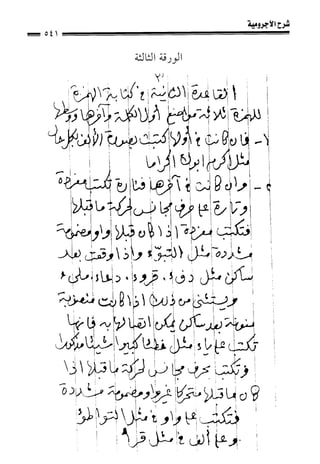 شرح الآجرومية
٥٤١
الورقة الثالثة
٣
القاعدة الثانية في كتابة الهمزة
للهمزة ثلاثة مواضع أول الكلمة وآخرها ووسطها
١- فإن كانت في أولها كتبت بصورة الألف بكل حال
مثل أكرم أبوك إكراما
٢- وإن كانت في آخرها فتارة تكتب مفردة
وتارة على حرف مجانس لحركة ما قبلها
فتكتب مفردة إذا كان قبلها واو مضمومة
مشددة مثل التبوّء وإذا وقعت بعد
ساكن مثل دفء، قروء، دعاء، مليء
ويستثنى من ذلك إذا كانت منصوبة
منونة بعد ساكن يمكن اتصالها به فإنها
تكتب على ياء مثل خطئا كبيرا شيئا مذكورا
وتكتب بحرف مجانس لحركة ما قبلها إذا
كان ما قبلها متحركا غير واو مضمومة مشددة
فتكتب على واو في مثل التواطؤ
وعلى ألف في مثل قرأ